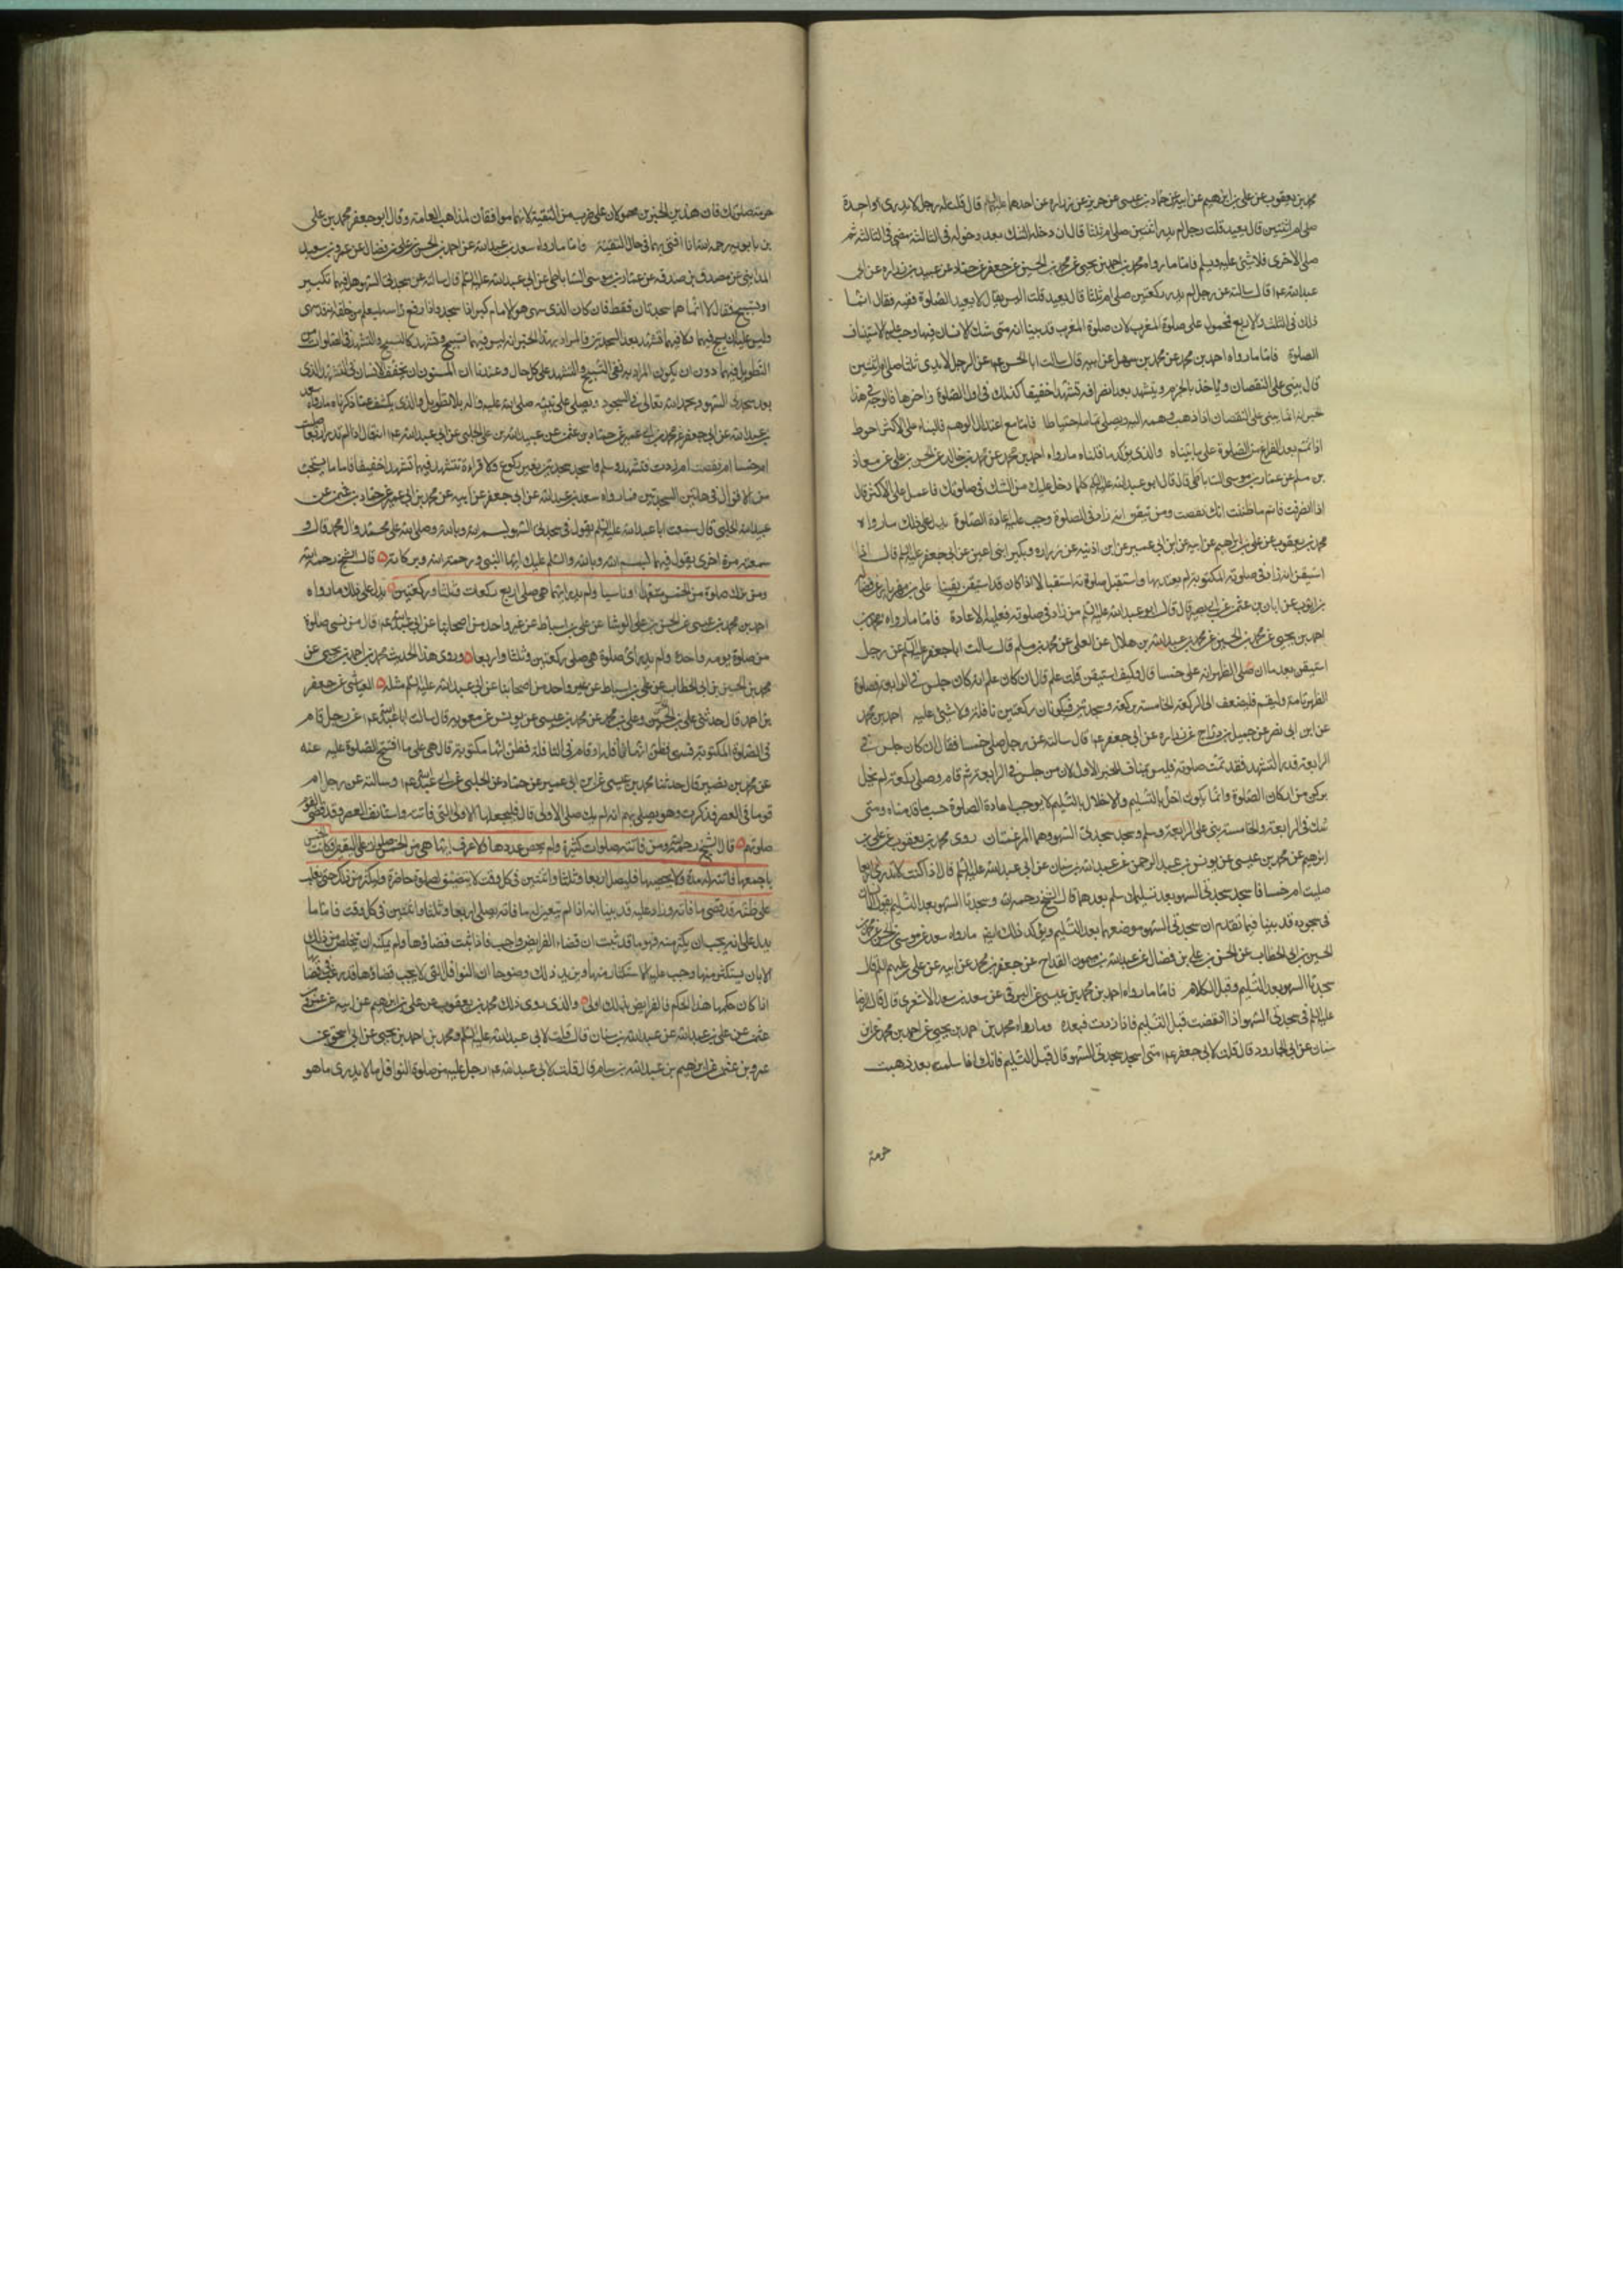 محمد بن يعقوب عن علي بن ابرهيم عن ابيه عن حماد بن عيسى عن حريز عن زراره عن احدهما عليهما قال قلت له رجل لا يدري او احدة
صلى ام اثنتين قال يعيد قلت رجل لم يدر اثنتين صلى ام ثلثا قال ان دخله الشك بعد دخوله في الثالثة مضى في الثالثة ثم
صلى الاخرى فلا شئ عليه ويسلم فاما ما رواه محمد بن احمد بن يحيى عن محمد بن الحسين عن جعفر عن حماد عن عبيد بن زراره عن ابي
عبدالله ع قال سالته عن رجل لم يدر ركعتين صلى ام ثلثا قال يعيد قلت اليس يقال لا يعيد الصلوة فقيه فقال انما
ذلك في الثلث والاربع فمحمول على صلوة المغرب لان صلوة المغرب قد بينا انه متى شك الانسان فيها وجب عليه الاستيناف
الصلوة فاما ما رواه احمد بن محمد عن محمد بن سهل عن ابيه قال سالت ابا الحسن ع عن الرجل لا يدري ثلثا صلى ام اثنتين
قال يبني على النقصان وياخذ بالجزم ويتشهد بعد انصرافه تشهدا خفيفا كذلك في اول الصلوة واخرها فالوجه في هذا
خبر انه انما يبني على النقصان اذا ذهب وهمه اليه ويصلي تمامه احتياطا فاما مع اعتدال الوهم فالبناء على الاكثر احوط
اذا تمم بعد الفراغ من الصلوة على ما بيناه والذي يؤكد ما قلناه ما رواه احمد بن محمد عن محمد بن خالد عن الحسن بن علي عن معاذ
بن مسلم عن عمار بن موسى الساباطي قال قال ابو عبدالله عليه السلم كلما دخل عليك من الشك في صلوتك فاعمل على الاكثر قال
اذا انصرفت فاتم ما ظننت انك نقصت ومن تيقن انه زاد في الصلوة وجب عليه اعادة الصلوة يدل على ذلك ما رواه
محمد بن يعقوب عن علي بن ابراهيم عن ابيه عن ابن ابي عمير عن ابن اذينه عن زراره وبكير ابني اعين عن ابي جعفر عليه السلم قال اذا
استيقن انه زاد في صلوته المكتوبة لم يعتد بها واستقبل صلوته استقبالا اذا كان قد استيقن يقينا علي بن مهزيار عن فضالة
بن ايوب عن ابان بن عثمن عن ابي بصير قال قال ابو عبدالله عليه السلم من زاد في صلوته فعليه الاعادة فاما ما رواه محمد بن
احمد بن يحيى عن محمد بن الحسين عن محمد بن عبيدالله بن هلال عن العلى عن محمد بن مسلم قال سالت ابا جعفر عليه السلم عن رجل
استيقن بعد ما ان صلى الظهر انه صلى خمسا قال وكيف استيقن قلت علم قال ان كان علم انه كان جلس في الرابعة فصلوة
الظهر تامة وليقم فليضف الى الركعة الخامسة ركعة وسجدتين فيكونان ركعتين نافلة ولا شئ عليه احمد بن محمد
عن ابن ابي نصر عن جميل بن دراج عن زراره عن ابي جعفر ع قال سالته عن رجل صلى خمسا فقال ان كان جلس في
الرابعة قدر التشهد فقد تمت صلوته فليس ينافى الخبر الاول لان من جلس في الرابعة ثم قام وصلى ركعة لم يخل
بركن من اركان الصلوة وانما يكون اخل بالتسليم والاخلال بالتسليم لا يوجب اعادة الصلوة حسب ما قدمناه ومتى
شك في الرابعة والخامسة بنى على الرابعة وسلم وسجد سجدتي السهو وهما المرغمتان روى محمد بن يعقوب عن علي بن
ابرهيم عن محمد بن عيسى عن يونس بن عبد الرحمن عن عبدالله بن سنان عن ابي عبدالله عليه السلم قال اذا كنت لا تدري اربعا
صليت ام خمسا فاسجد سجدتي السهو بعد تسليمك ثم سلم بعدهما قال الشيخ رحمه الله وسجدتا السهو بعد التسليم يقول
في سجوده قد بينا فيما تقدم ان سجدتي السهو موضعهما بعد التسليم ويؤكد ذلك ايضا ما رواه سعد عن موسى بن الحسن عن محمد بن
الحسين بن ابي الخطاب عن الحسن بن علي بن فضال عن عبدالله بن ميمون القداح عن جعفر بن محمد عن ابيه عن علي عليهم السلم قال
سجدتا السهو بعد التسليم وقبل الكلام فاما ما رواه احمد بن محمد بن عيسى عن البرقي عن سعد بن سعد الاشعري قال قال الرضا
عليه السلم في سجدتي السهو اذا نقصت قبل التسليم فاذا زدت فبعده وما رواه محمد بن احمد بن يحيى عن احمد بن محمد عن ابن
سنان عن ابي الجارود قال قلت لابي جعفر ع متى اسجد سجدتي السهو قال قبل التسليم فانك اذا سلمت بعد ذهبت
حرمة
حرمة صلوتك فان هذين الخبرين محمولان على ضرب من التقية لانهما موافقان لمذاهب العامة وقال ابو جعفر محمد بن علي
بن بابويه رحمه الله انا افتي بهما في حال التقية فاما ما رواه سعد بن عبدالله عن احمد بن الحسن بن علي بن فضال عن عمرو بن سعيد
المدايني عن مصدق بن صدقه عن عمار بن موسى الساباطي عن ابي عبدالله عليه السلم قال سالته عن سجدتي السهو هل فيهما تكبير
او تسبيح فقال لا انما هما سجدتان فقط فان كان الذي سهى هو الامام كبر اذا سجد واذا رفع راسه ليعلم من خلفه انه قد سهى
وليس عليه ان يسبح فيهما ولا فيهما تشهد بعد السجدتين فالمراد بهذا الخبر انه ليس فيهما تسبيح وتشهد كالتسبيح والتشهد في الصلوات من
التطويل فيهما دون ان يكون المراد به نفى التسبيح والتشهد على كل حال وعندنا ان المسنون ان يخفف الانسان في التشهد الذي
بعد سجدتي السهو ويحمد الله تعالى في السجود ويصلي على نبيه صلى الله عليه واله بلا تطويل والذي يكشف عما ذكرناه ما رواه سعد
بن عبدالله عن ابي جعفر عن محمد بن ابي عمير عن حماد بن عثمن عن عبيدالله بن علي الحلبي عن ابي عبدالله ع انه قال اذا لم تدر اربعا صليت
ام خمسا ام نقصت ام زدت فتشهد وسلم واسجد سجدتين بغير ركوع ولا قراءة تتشهد فيهما تشهدا خفيفا فاما ما يستحب
من الاقوال في هاتين السجدتين فما رواه سعد بن عبدالله عن ابي جعفر عن ابيه عن محمد بن ابي عمير عن حماد بن عثمن عن
عبيدالله الحلبي قال سمعت ابا عبدالله عليه السلم يقول في سجدتي السهو بسم الله وبالله وصلى الله على محمد وال محمد قال و
سمعته مرة اخرى يقول فيهما بسم الله وبالله والسلم عليك ايها النبي ورحمة الله وبركاته قال الشيخ رحمه الله
ومن ترك صلوة من الخمس متعمدا او ناسيا ولم يدر ايتها هي صلى اربع ركعات وثلثا وركعتين يدل على ذلك ما رواه
احمد بن محمد بن عيسى عن الحسن بن علي الوشا عن علي بن اسباط عن غير واحد من اصحابنا عن ابي عبدالله ع قال من نسي صلوة
من صلوة يومه واحدة ولم يدر اي صلوة هي صلى ركعتين وثلثا واربعا وروى هذا الحديث محمد بن احمد بن يحيى عن
محمد بن الحسين بن ابي الخطاب عن علي بن اسباط عن غير واحد من اصحابنا عن ابي عبدالله عليه السلم مثله العياشي عن جعفر
بن احمد قال حدثني علي بن الحسن وعلي بن محمد عن محمد بن عيسى عن يونس عن معوية قال سالت ابا عبدالله ع عن رجل قام
في الصلوة المكتوبة فسهى فظن انها نافلة او قام في النافلة فظن انها مكتوبة قال هي على ما افتتح الصلوة عليه عنه
عن محمد بن نصير قال حدثنا محمد بن عيسى عن ابن ابي عمير عن حماد عن الحلبي عن ابي عبدالله ع وسالته عن رجل ام
قوما في العصر فذكر وهو يصلي بهم انه لم يك صلى الاولى قال فليجعلها الاولى التي فاتته واستانف العصر وقد قضى القوم
صلوتهم قال الشيخ رحمه الله ومن فاتته صلوات كثيرة ولم يحص عددها ولا عرف ايتها هي من الخمس صلوات على اليقين او كانت الخمس
باجمعها فاتته له مدة لا يحصيها فليصل اربعا وثلثا واثنتين في كل وقت لا يتضيق لصلوة حاضرة وليكثر من ذلك حتى يغلب
على ظنه قد قضى ما فاته وزاد عليه قد بينا انه اذا لم يتعين له ما فاته يصلي اربعا وثلثا واثنتين في كل وقت فاما ما
يدل على انه يجب ان يكثر منه فهو ما قد ثبت ان قضاء الفرايض واجب فاذا ثبت قضاؤها ولم يمكنه ان يتخلص من ذلك
الا بان يستكثر منها وجب عليه الاستكثار منها ويزيد ذلك وضوحا ان النوافل التي لا يجب قضاؤها قد رغب في قضائها
اذا كان حكمها هذا الحكم فالفرايض بذلك اولى والذي روى ذلك محمد بن يعقوب عن علي بن ابرهيم عن ابيه عن عمرو بن
عثمن عن علي بن عبدالله عن عبدالله بن سنان قال قلت لابي عبدالله عليه السلم ومحمد بن احمد بن يحيى عن ابي اسحق عن
عمرو بن عثمن عن ابرهيم بن عبدالله بن سام قال قلت لابي عبدالله ع رجل عليه من صلوة النوافل ما لا يدري ما هو